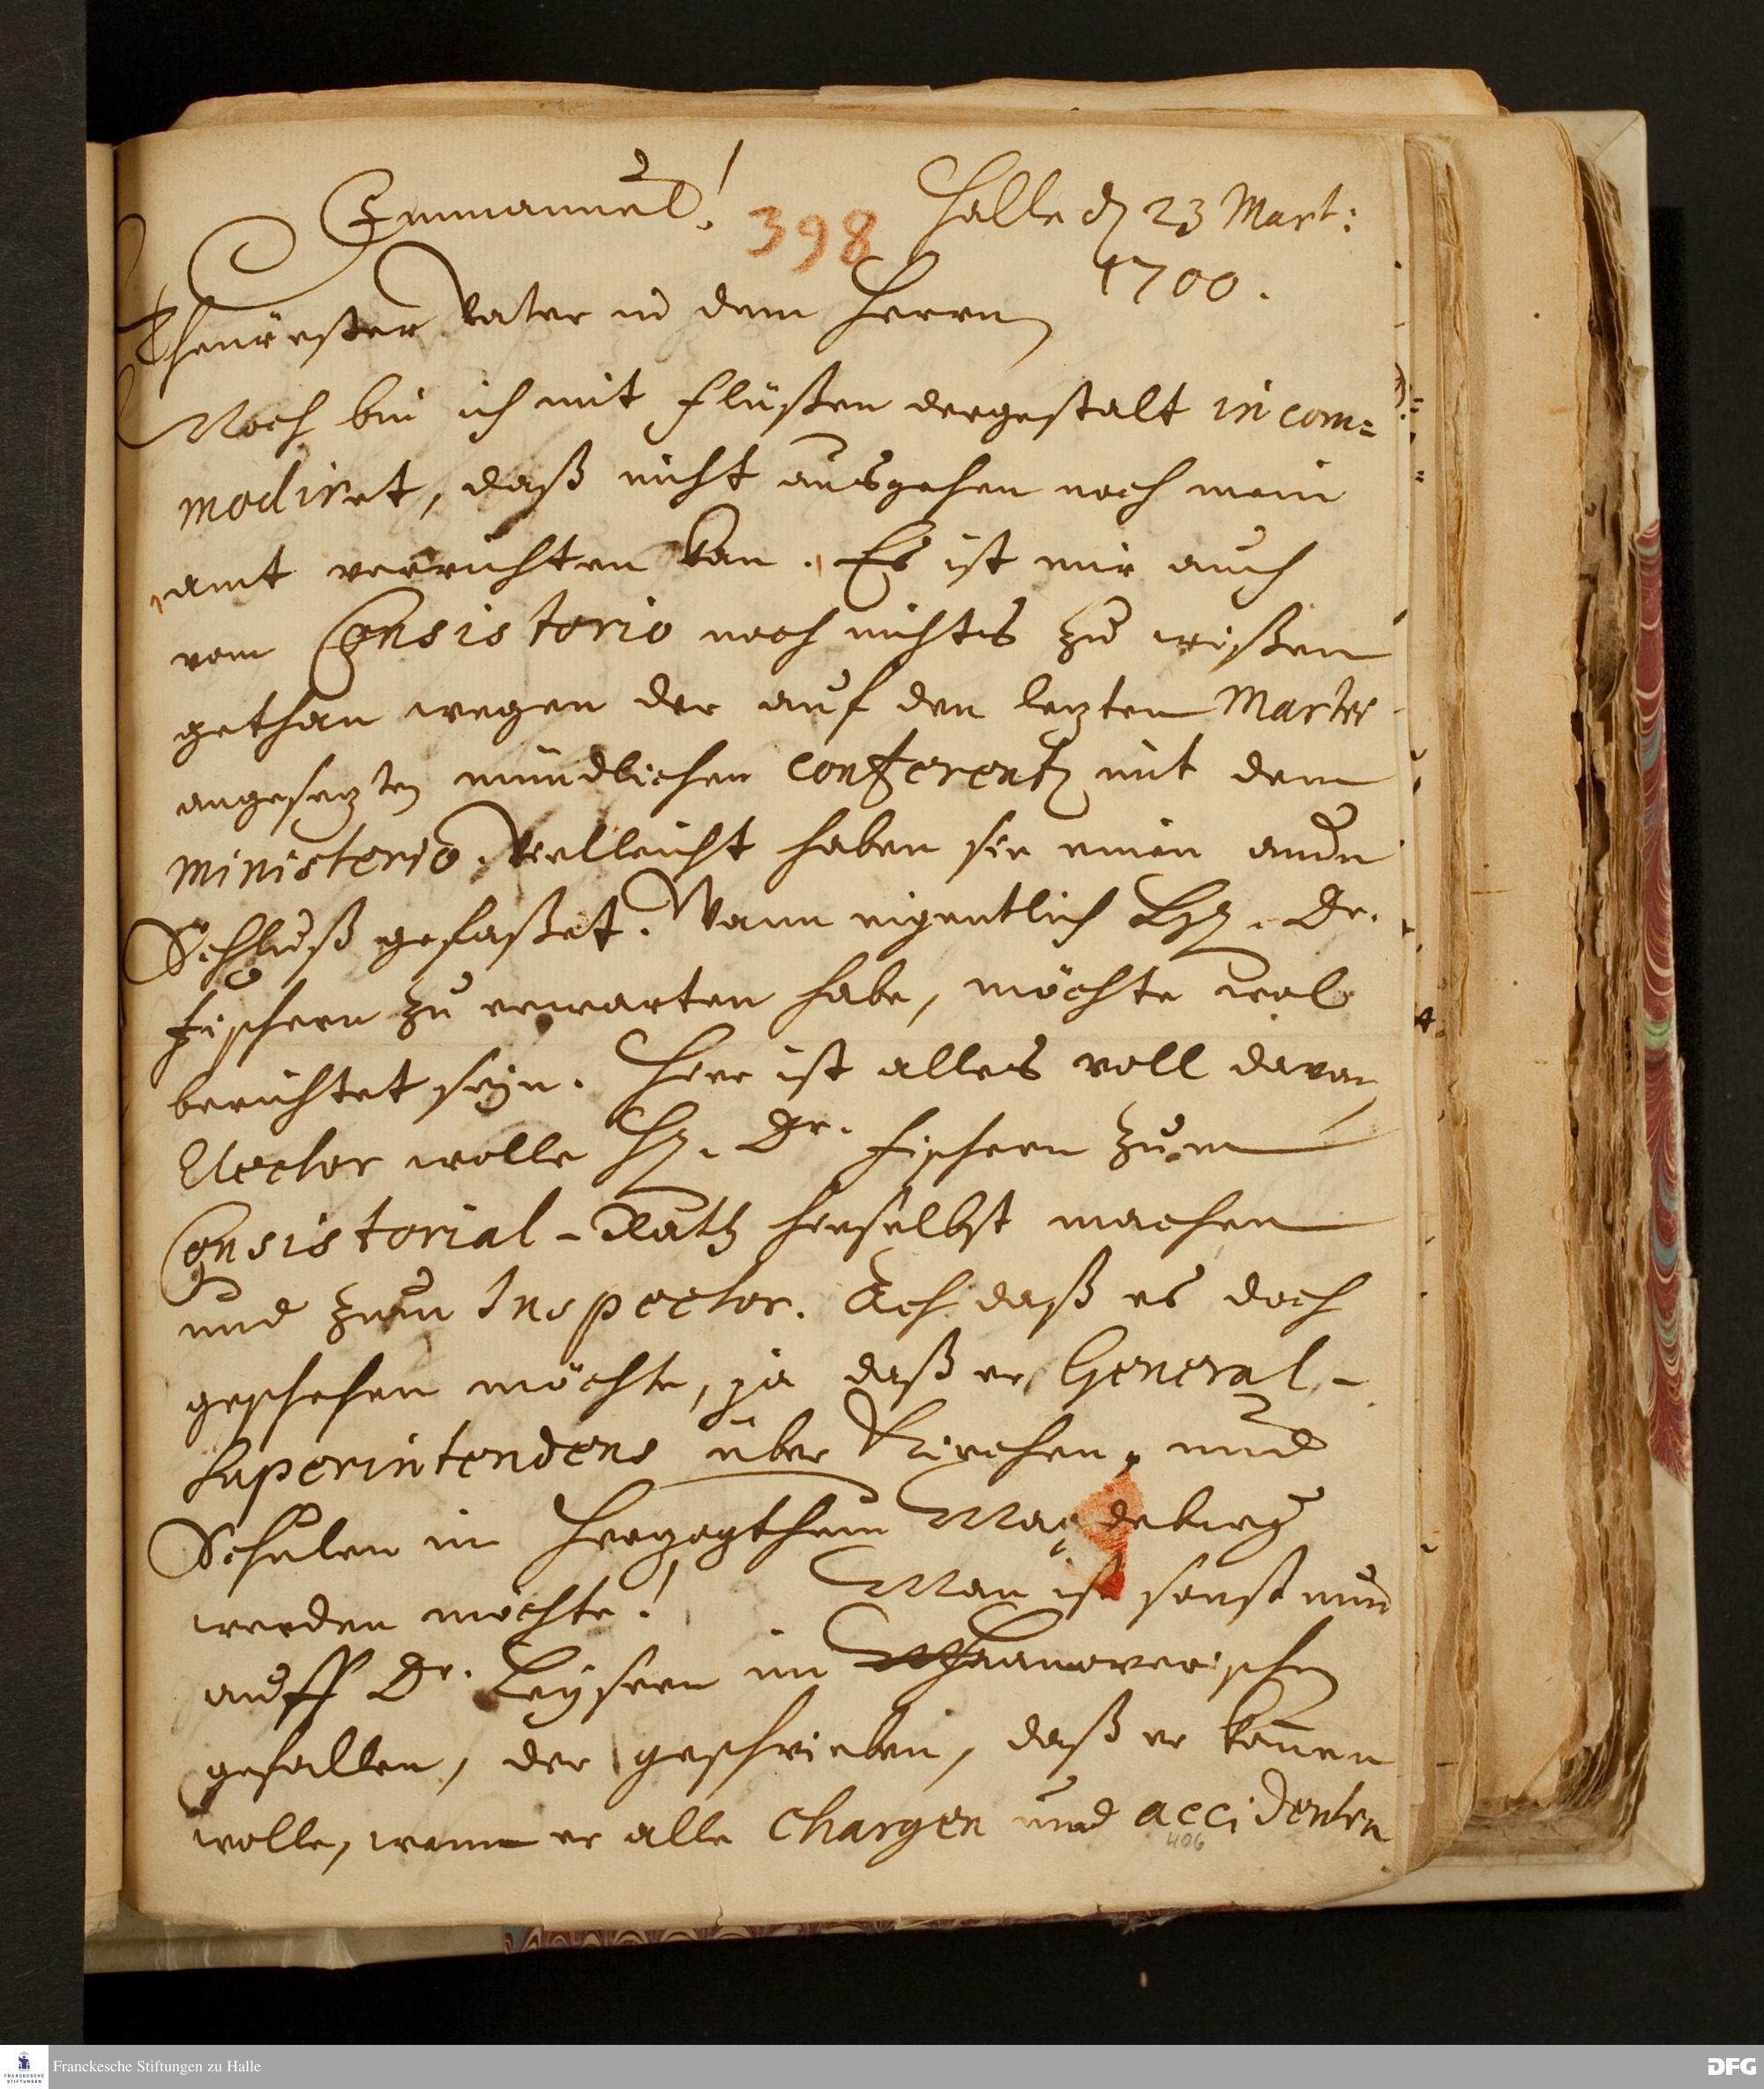 Emmanuel!
398
Halle d 23 Mart:
1700.
Theurester Vater in dem Herrn
Noch bin ich mit flüßen dergestalt incom=
modiret, daß nicht ausgehen noch mein
amt verrichten kan. Es ist mir auch
vom Consistorio noch nichts zu wißen
gethan wegen der auf den lezten Martii
angesezten mündlichen conferentz mit dem
ministerio. Vielleicht haben sie einen andn
Schluß gefaßet. Wann eigentlich Hr. Dr.
fischern zu erwarten habe, möchte wol
berichtet seyn. Hier ist alles voll davon
Elector wolle Hr. Dr. fischern zum
Consistorial-Rath hieselbst machen
und zum Inspector. Ach daß es doch
geschehen möchte, ja daß er General-
Superintendens über Kirchen und
Schulen im Herzogthum Magdeburg
werden möchte! Man ist sonst nun
auff Dr. Leysern im Hannoverischen
gefallen, der geschrieben, daß er komen
wolle, wenn er alle Chargen und accidentien
406
Franckesche Stiftungen zu Halle
FRANCKESCHE
STIFTUNGEN
DFG